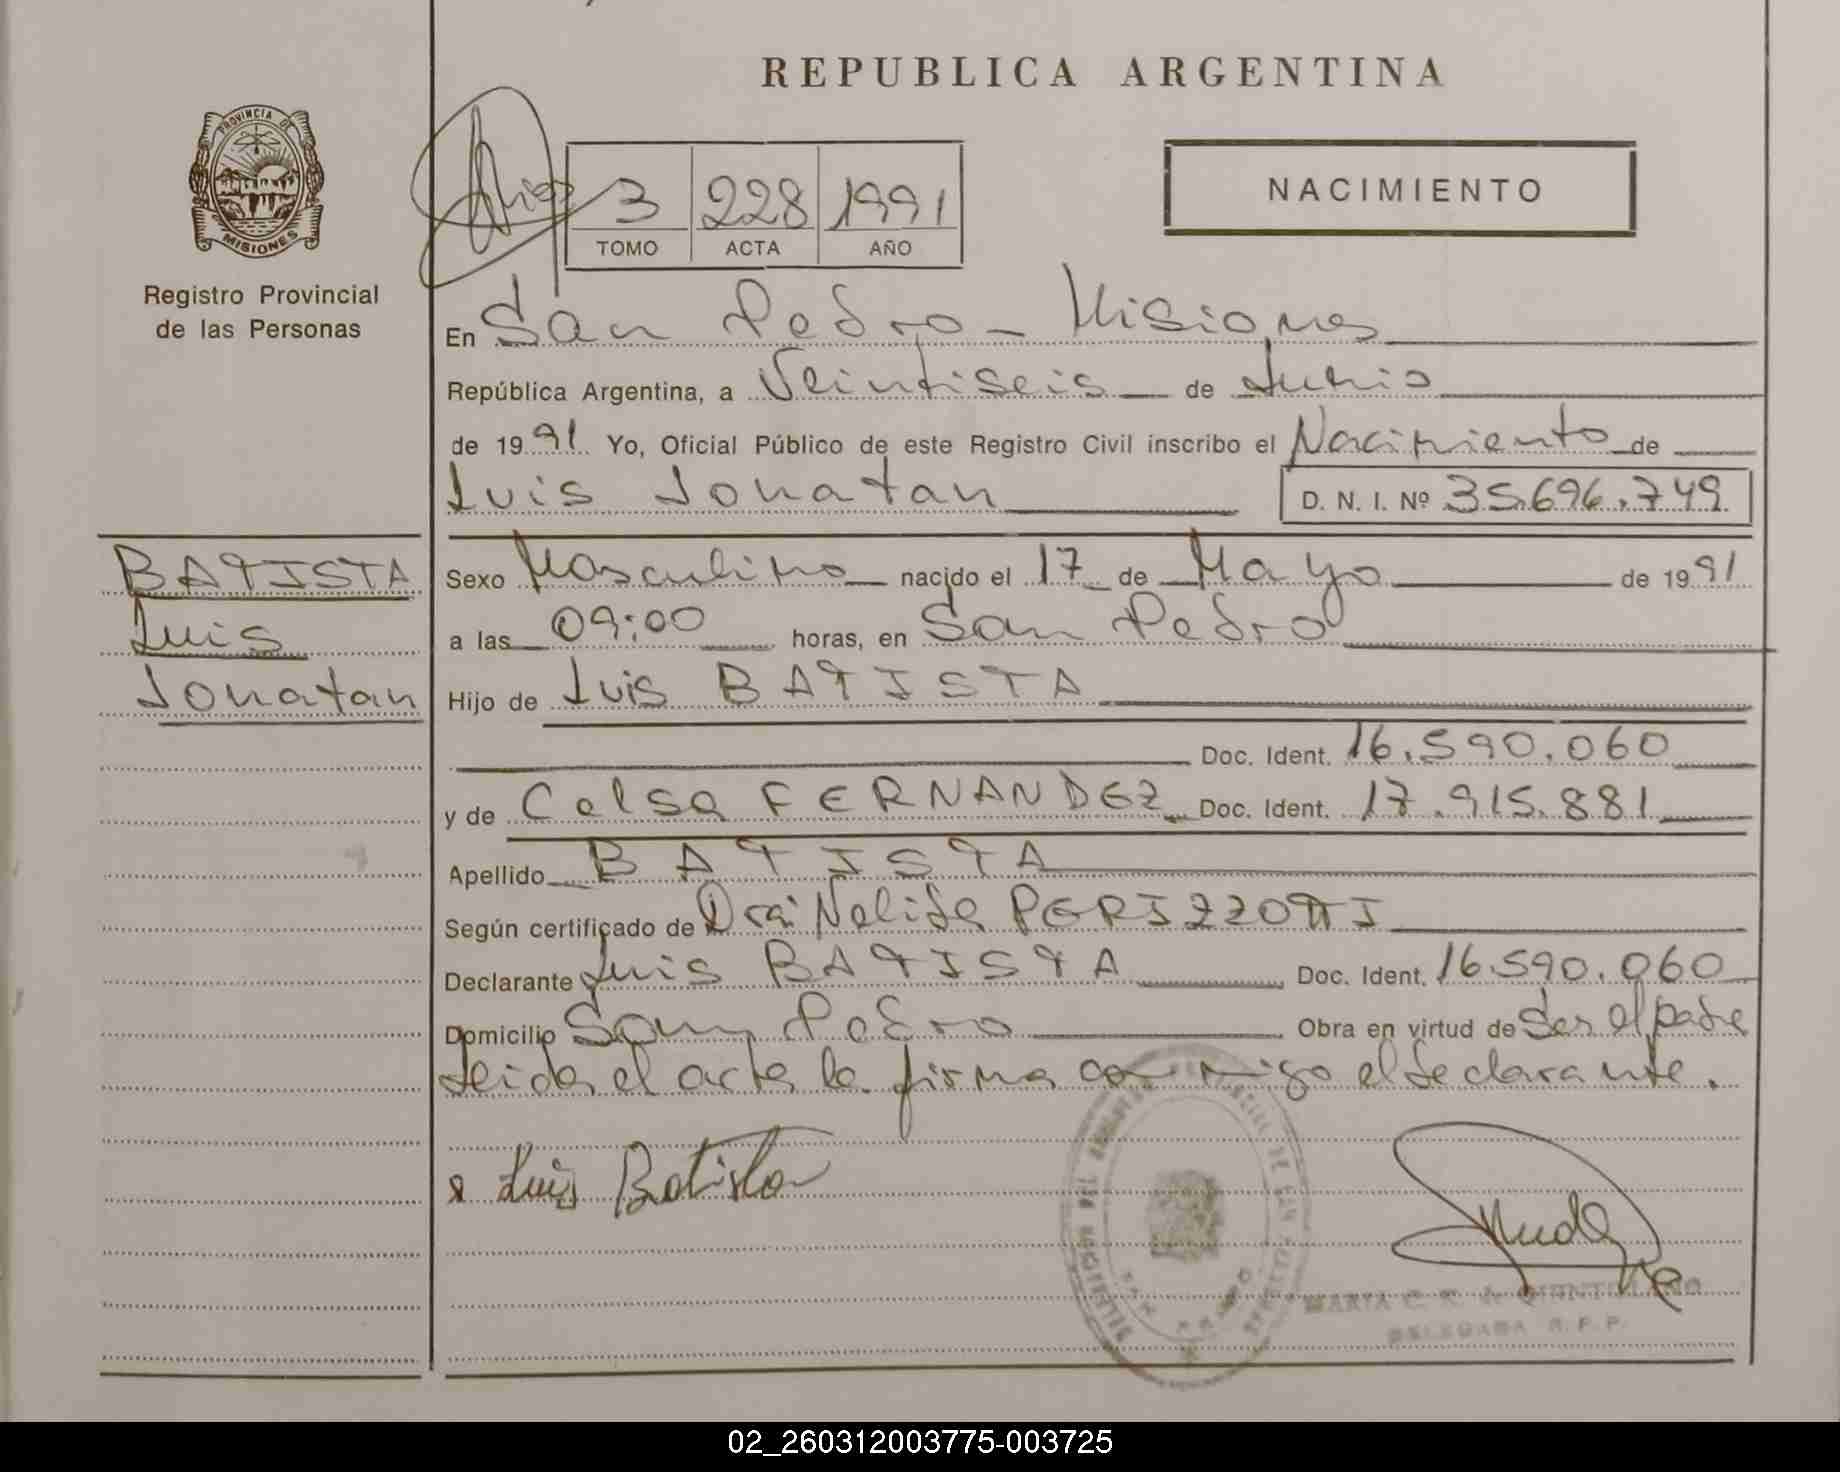 REPUBLICA ARGENTINA
PROVINCIA DE
MISIONES
Registro Provincial
de las Personas
3 228 1991
TOMO ACTA AÑO
NACIMIENTO
En San Pedro - Misiones
República Argentina, a Veintiseis de Junio
de 1991 Yo, Oficial Público de este Registro Civil inscribo el Nacimiento de
Luis Jonatan D. N. I. Nº 35.696.749
BATISTA
Luis
Jonatan
Sexo Masculino nacido el 17 de Mayo de 1991
a las 09:00 horas, en San Pedro
Hijo de Luis BATISTA
Doc. Ident. 16.590.060
y de Celsa FERNANDEZ Doc. Ident. 17.915.881
Apellido BATISTA
Según certificado de Dra: Nelida PERIZZOTTI
Declarante Luis BATISTA Doc. Ident. 16.590.060
Domicilio San Pedro Obra en virtud de Ser el padre
Leida el acta la firma conmigo el declarante.
Luis Batista
MARIA C.
DELEGADA R. P. P.
SAN PEDRO
02_260312003775-003725